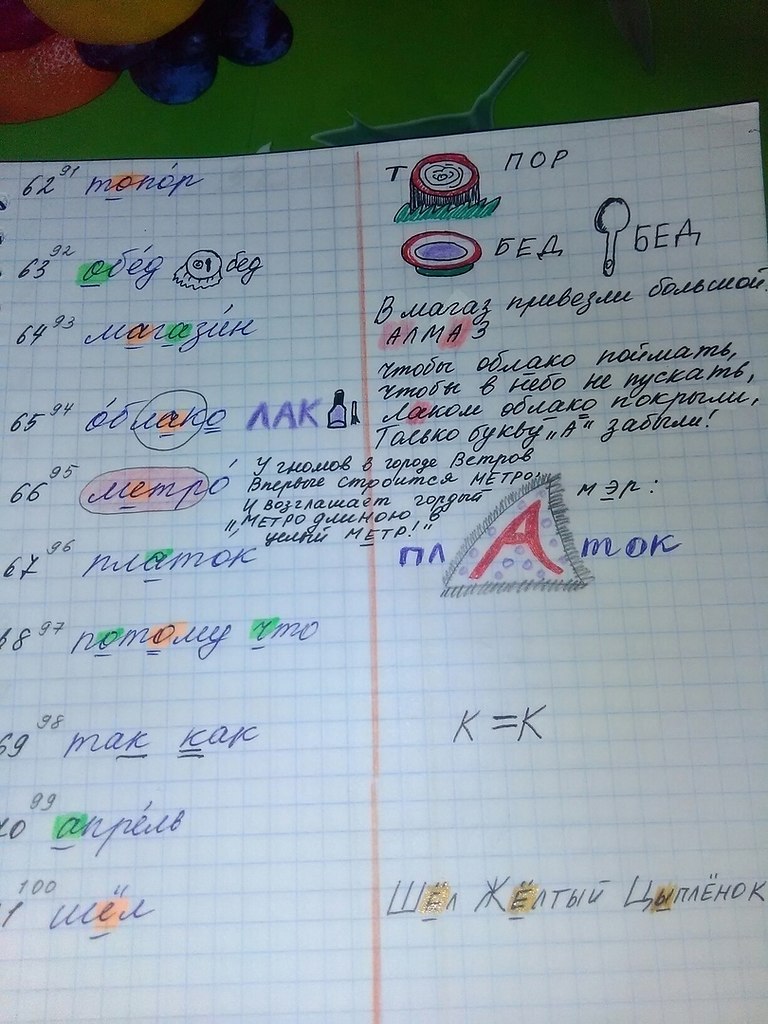 62 91 топо́р
Т ПОР
63 92 обе́д бед
БЕД БЕД
64 93 магази́н
В магаз привезли большой
АЛМАЗ
65 94 о́блако ЛАК
Чтобы облако поймать,
Чтобы в небо не пускать,
Лаком облако покрыли,
Только букву „А" забыли!
66 95 метро́
У гномов в городе Ветров
Впервые строится МЕТРО;
И возглашает гордый
мэр:
„МЕТРО длиною в
целый МЕТР!"
67 96 плато́к
пл А ток
68 97 потому что
69 98 так как
К=К
70 99 апре́ль
71 100 шёл
Шёл Жёлтый Цыплёнок